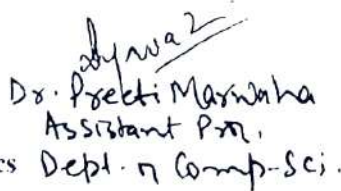 Dr. Preeti Marwaha
Assistant Prof.
cs Dept. of Comp-Sci.